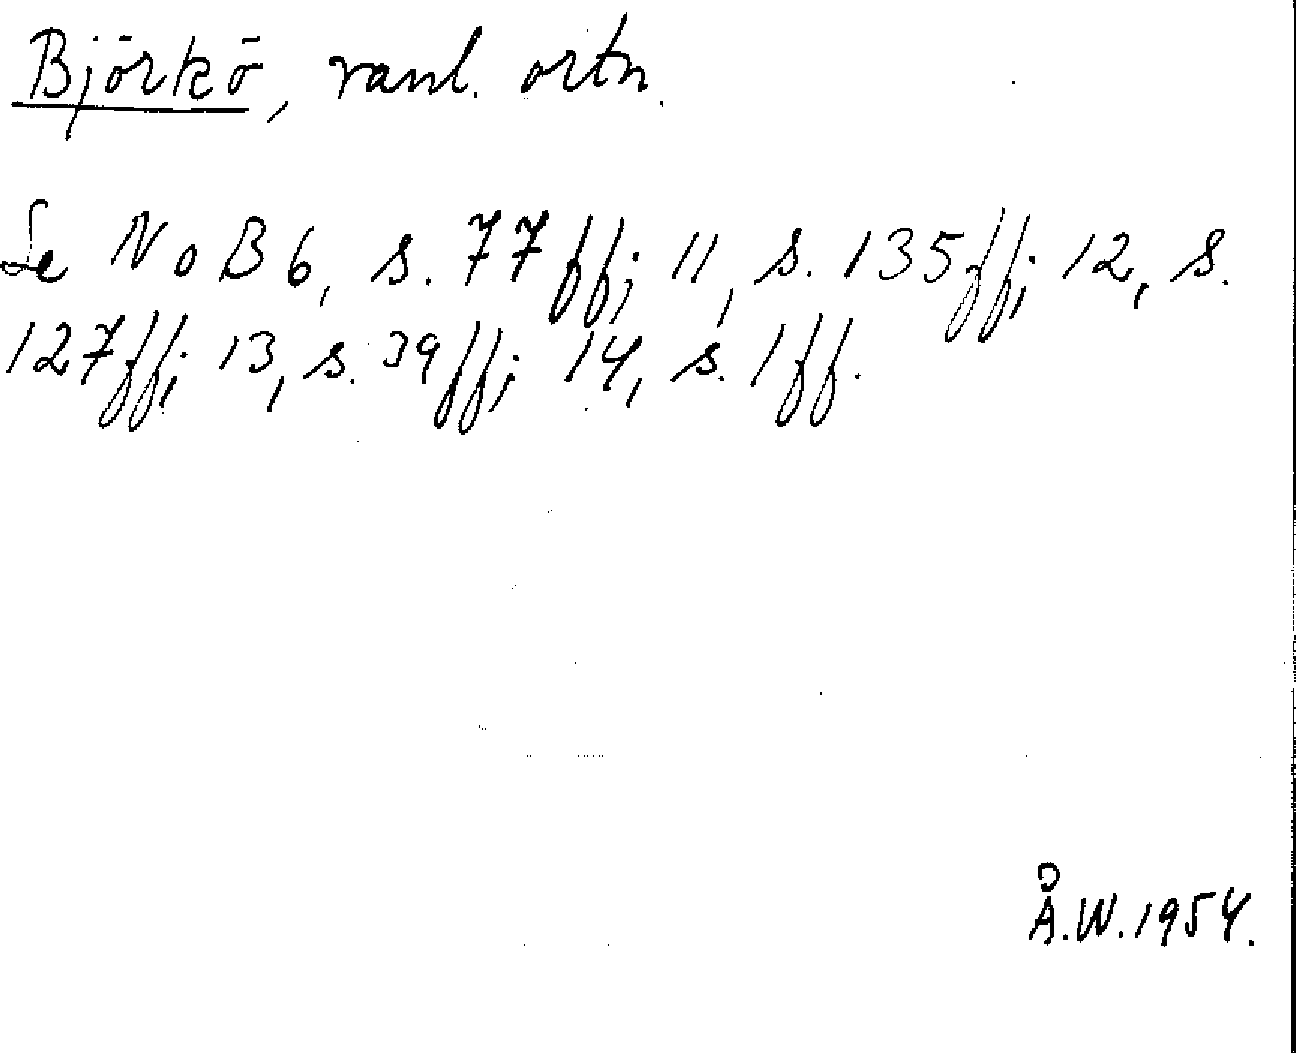 Björkö, vanl. ortn.
Se NoB 6, s. 77 ff; 11, s. 135 ff; 12, s.
127 ff; 13, s. 39 ff; 14, s. 1 ff.
Å.W. 1954.